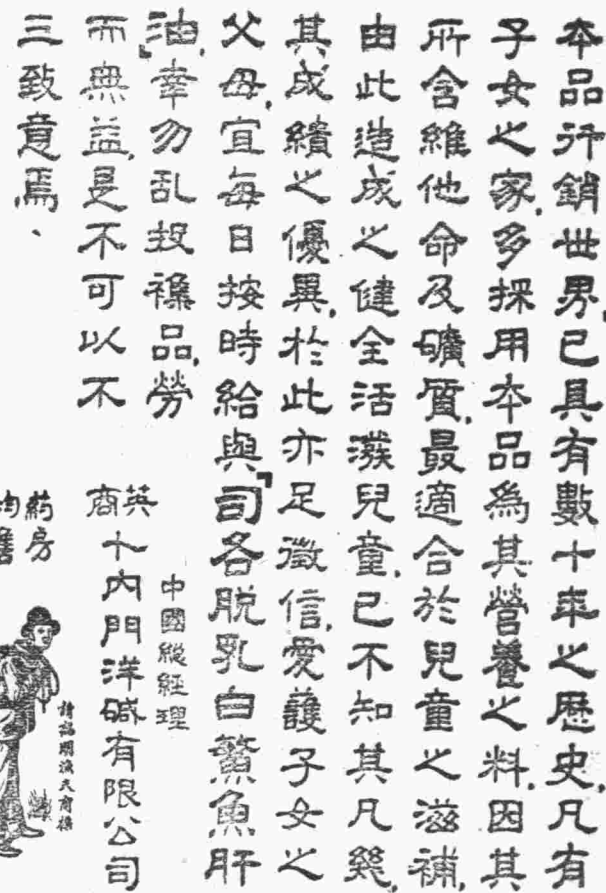 本品行銷世界,已具有數十年之歷史,凡有
子女之家,多採用本品為其營養之料,因其
所含維他命及礦質,最適合於兒童之滋補,
由此造成之健全活潑兒童,已不知其凡幾,
其成績之優異,於此亦足徵信,愛護子女之
父母,宜每日按時給與「司各脫乳白鰵魚肝
油」幸勿乱投襍品,勞
而無益,是不可以不
三致意焉、
中國總經理
英商卜內門洋碱有限公司
药房
均售
請認明漁夫商標